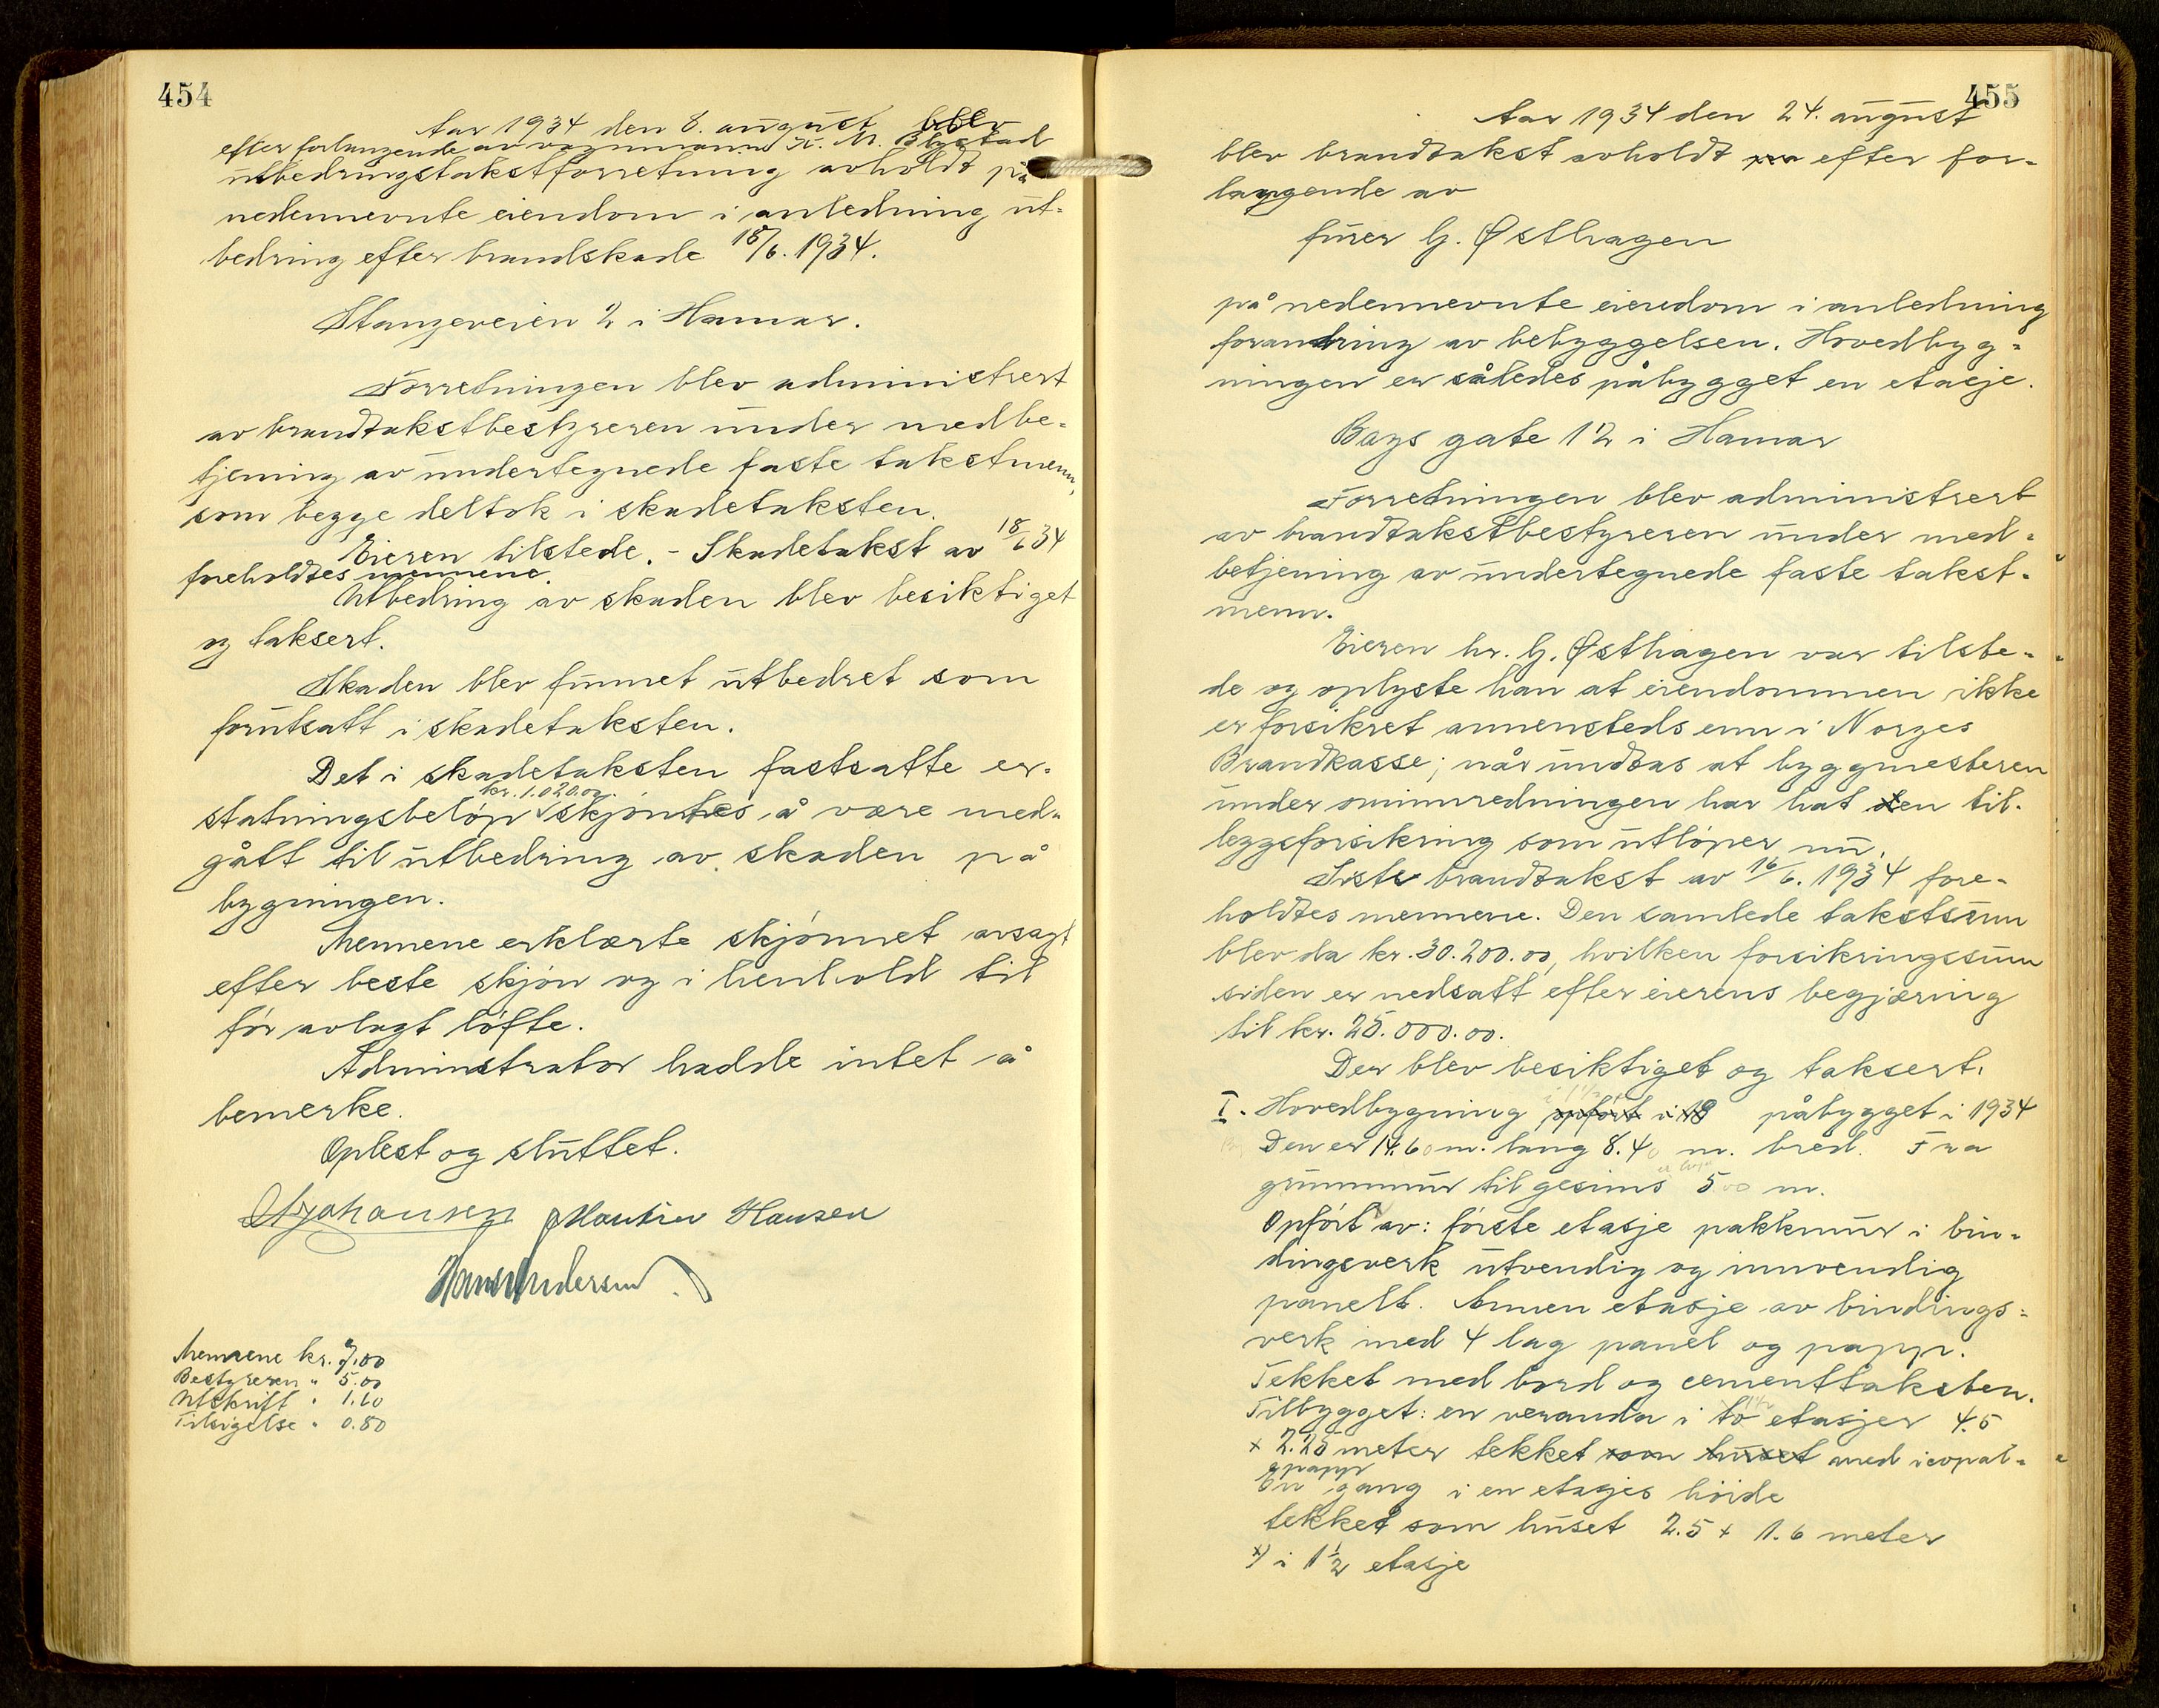 454
Aar 1934 den 8. august blev
efter forlangende av vognmann K. M. Blystad
utbedringstakstforretning avholdt på
nedennevnte eiendom i anledning ut-
bedring efter brandskade 18/6. 1934.
Stangeveien 2 i Hamar.
Forretningen blev administrert
av brandtakstbestyreren under medbe-
tjening av undertegnede faste takstmenn,
som begge deltok i skadetaksten.
Eieren tilstede. - Skadetakst av 18/6 34
foreholdtes mennene.
Utbedring av skaden blev besiktiget
og taksert.
Skaden blev funnet utbedret som
forutsatt i skadetaksten.
Det i skadetaksten fastsatte er-
kr. 1.020.00.
statningsbeløp skjøntes å være med-
gått til utbedring av skaden på
bygningen.
Mennene erklærte skjønnet avsagt
efter beste skjøn og i henhold til
før avlagt løfte.
Adminstrator hadde intet å
bemerke.
Oplest og sluttet.
Johansen Martin Hansen
Hans Andersen
Mennene kr. 7.00
Bestyreren " 5.00
Utskrift " 1.10
Tilsigelse " 0.80
455
Aar 1934 den 24. august
blev brandtakst avholdt efter for-
langende av
furer G. Østhagen
på nedennevnte eiendom i anledning
forandring av bebyggelsen. Hovedbyg-
ningen er således påbygget en etasje.
Bays gate 12 i Hamar
Forretningen blev administrert
av brandtakstbestyreren under med-
betjening av undertegnede faste takst-
menn.
Eieren hr. G. Østhagen var tilste-
de og oplyste han at eiendommen ikke
er forsikret annensteds enn i Norges
Brandkasse; når undtas at byggmesteren
under ominnredningen har hat en til-
leggsforsikring som utløper nu.
Siste brandtakst av 16/6. 1934 fore-
holdtes mennene. Den samlede takstsum
blev da kr. 30.200.00, hvilken forsikringssum
siden er nedsatt efter eierens begjæring
til kr. 25.000.00.
Der blev besiktiget og taksert.
I. Hovedbygning opført i 18 påbygget i 1934
Den er 14.60 m. lang 8.40 m. bred. Fra
grunnmur til gesims 5.00 m.
Opført av: første etasje pakkmur i bin-
dingsverk utvendig og innvendig
panelt. Annen etasje av bindings-
verk med 4 lag panel og papp.
Tekket med bord og cementtaksten.
Tilbygget: en veranda i to etasjer 4.5
x 2.25 meter tekket som huset med icopal-
papp
En gang i en etasjes høide
tekket som huset 2.5 x 1.6 meter
x) i 1 1/2 etasje